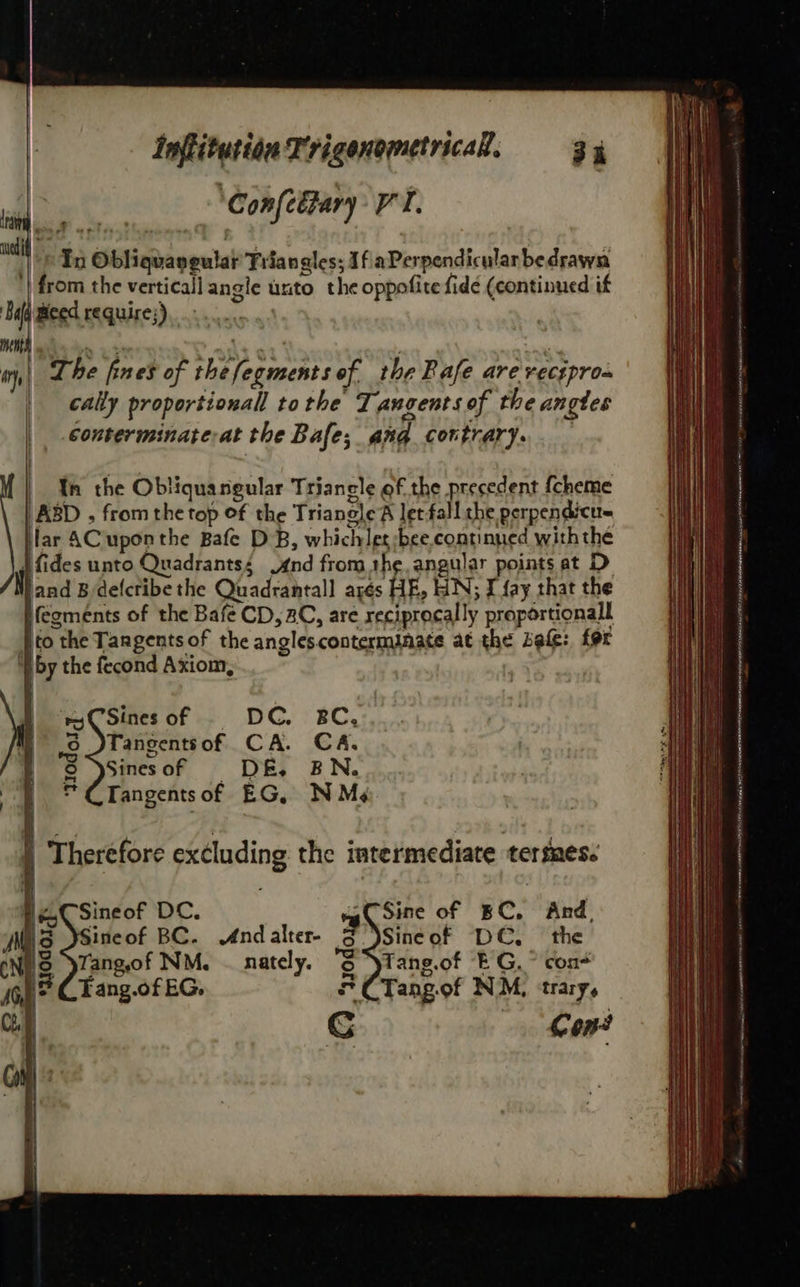 Inſtitution Trigonometricall. 31
Conſectary VI.
In Obliquangular Triangles; If a Perpendicular be drawn
from the verticall angle unto the oppoſite ſide (continued if
need require;)
The ſines of the ſegments of the Baſe are recipro-
cally proportionall to the Tangents of the angles
conterminate at the Baſe; and contrary.
In the Obliquangular Triangle of the precedent ſcheme
ABD, from the top of the Triangle A let fall the perpendicu-
lar AC upon the Baſe DB, which let bee continued with the
ſides unto Quadrants; And from the angular points at D
and B deſcribe the Quadrantall arés HE, HN; I ſay that the
ſegménts of the Baſe CD, BC, are reciprocally proportionall
to the Tangents of the angles conterminate at the Baſe: for
by the ſecond Axiom,
Sines of DC. BC.
Tangents of CA. CA.
Sines of DE. BN.
Tangents of EG. NM.
Therefore excluding the intermediate termes.
Sine of DC. Sine of BC. And,
Sine of BC. And alter- Sine of DC. the
Tang.of NM. nately. Tang.of EG. con-
Tang.of EG. Tang.of NM, trary,
C Conſ